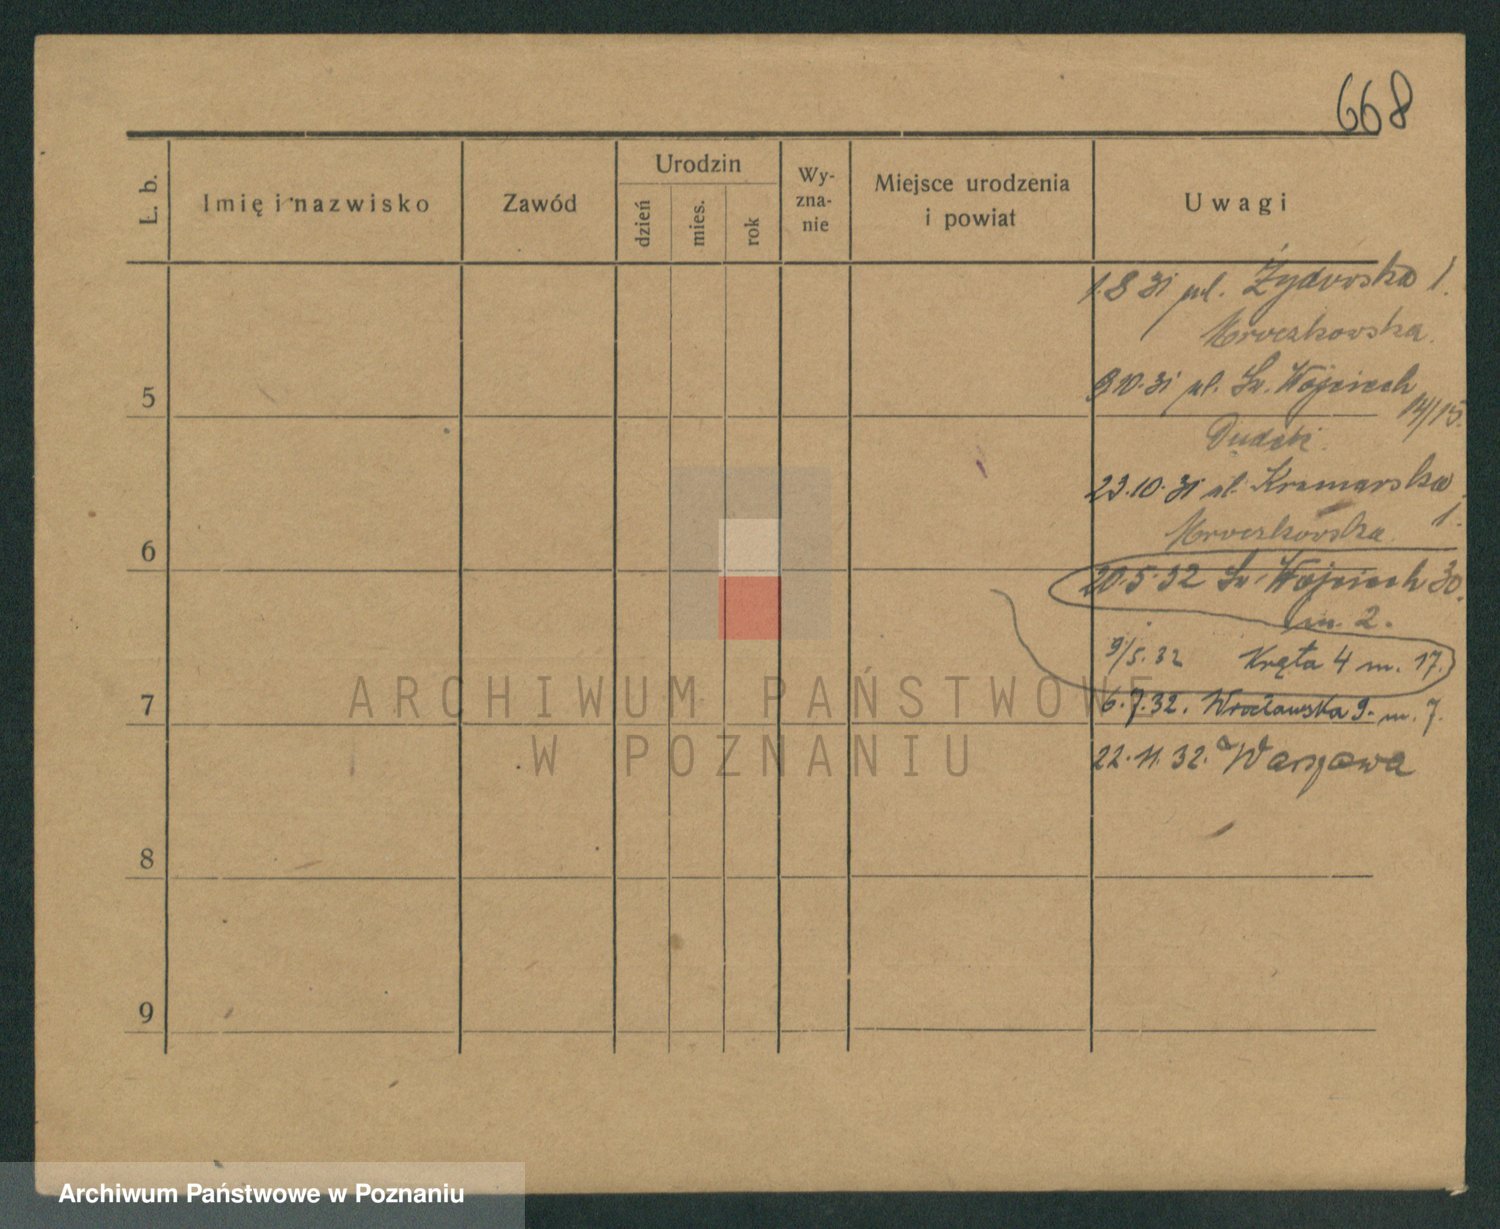 668
L. b.
Imię i nazwisko
Zawód
Urodzin
dzień
mies.
rok
Wy-
zna-
nie
Miejsce urodzenia
i powiat
Uwagi
1.8 31 ul. Żydowska 1.
Mroczkowska.
9.10.31 ul. Św. Wojciech
14/15.
5
Dudek
23.10.31 ul. Kramarska
1.
Mroczkowska
6
20.5.32 Św. Wojciech 30.
m. 2.
9/5.32 Kręta 4 m. 17.
6.7.32. Wrocławska 9. m. 7.
7
22.11.32. Warszawa
8
9
ARCHIWUM PAŃSTWOWE
W POZNANIU
Archiwum Państwowe w Poznaniu